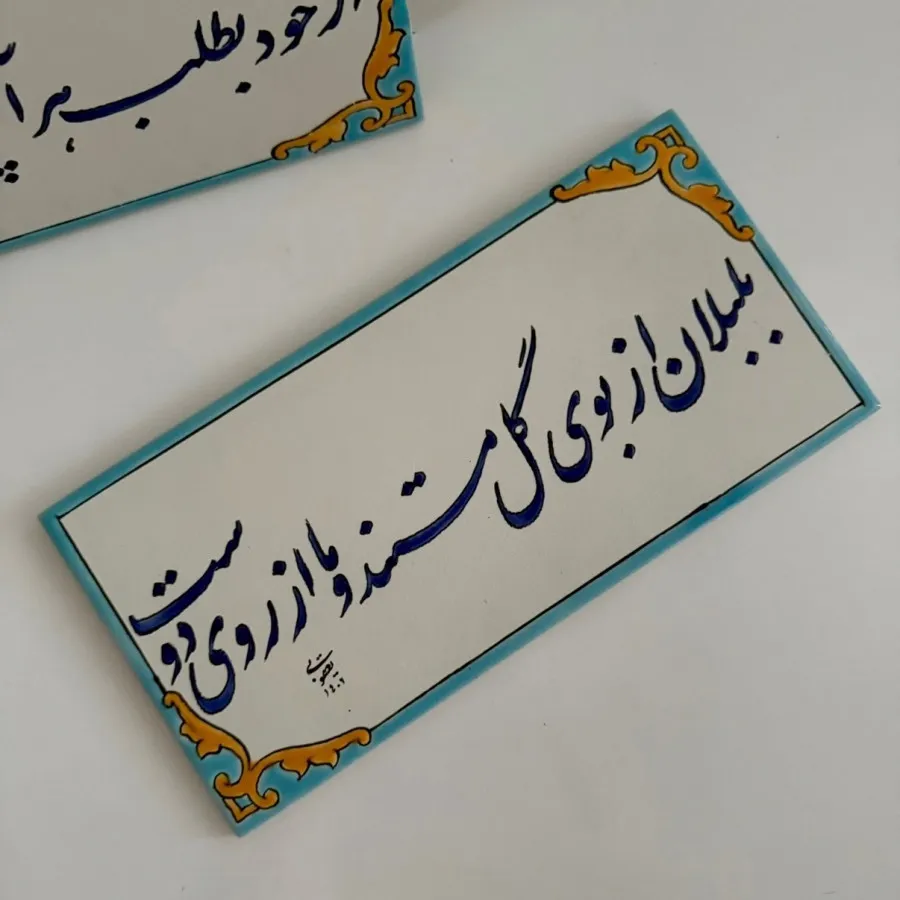 از خود بطلب هر آ
بلبلان از بوی گل مستند و ما از روی دوست
یعقوبی
۱۴۰۲